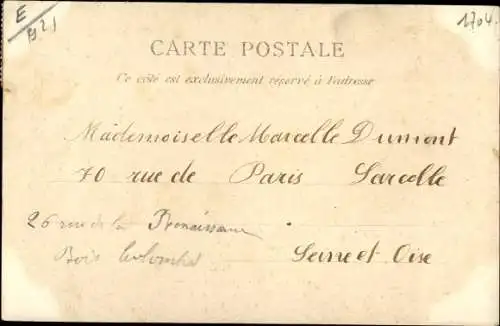 E
921
1704.
CARTE POSTALE
Ce côté est exclusivement réservé à l'adresse
Mademoiselle Marcelle Dumont
70 rue de Paris Sarcelle
26 rue de la Renaissance
Bois Colombes
Seine et Oise